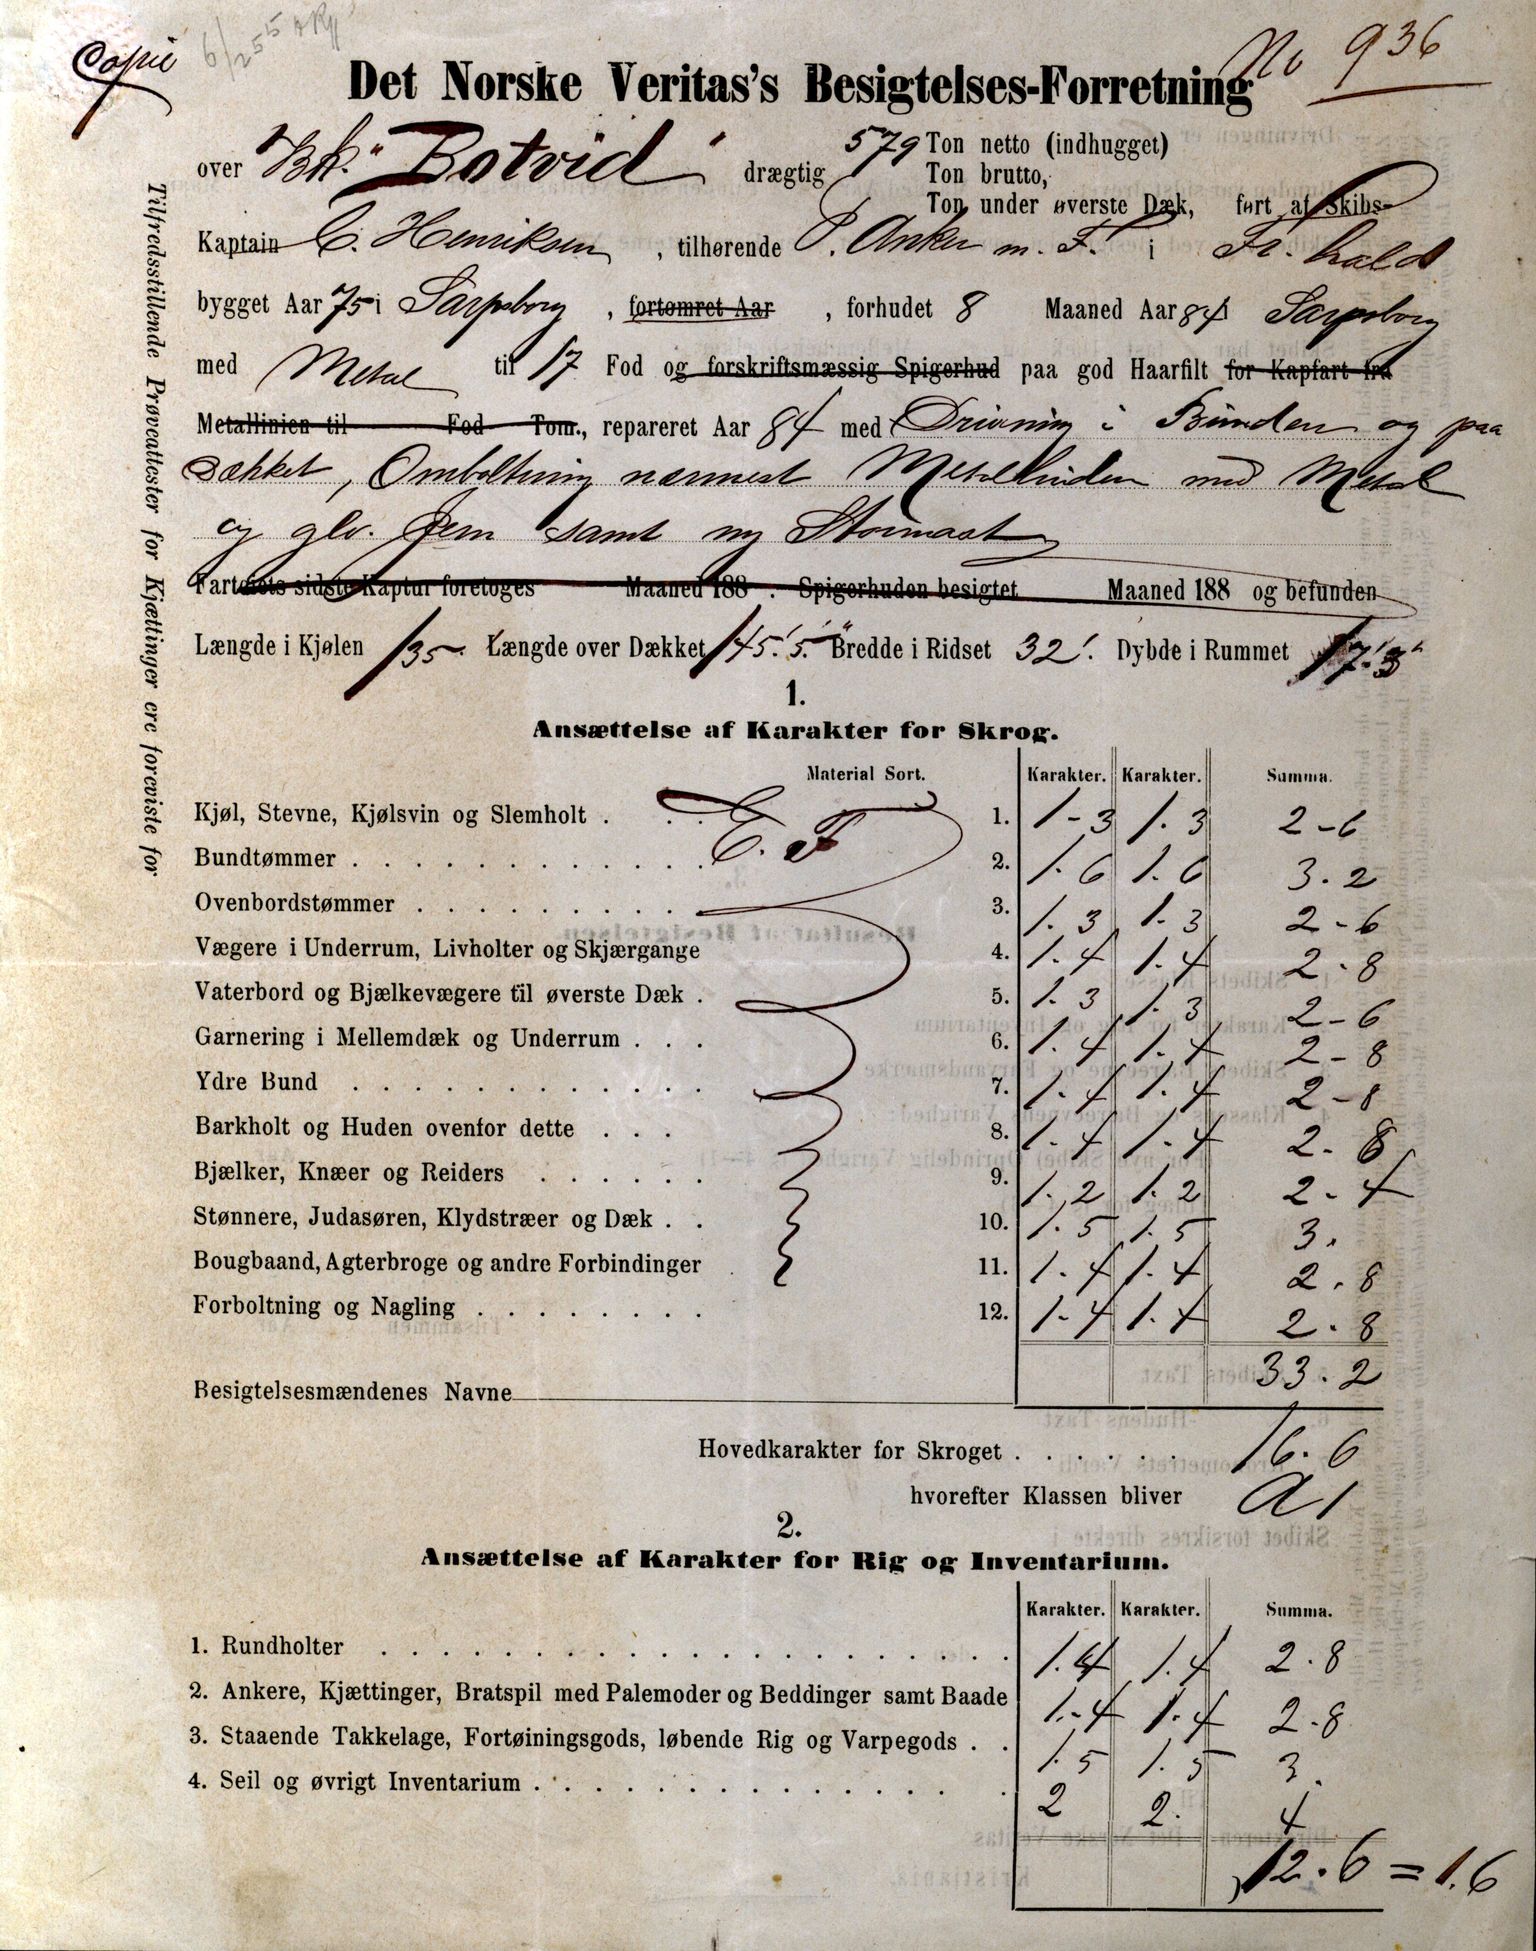 Copie
No 936
Det Norske Veritas's Besigtelses-Forretning
over Bk. "Botvid" drægtig 579 Ton netto (indhugget)
Ton brutto,
Ton under øverste Dæk, ført af Skibs-
Kaptain C. Henriksen, tilhørende P. Anker m. F. i Fr.hald
bygget Aar 75 i Sarpsborg, fortømret Aar , forhudet 8 Maaned Aar 84 i Sarpsborg
med Metal til 17 Fod og forskriftsmæssig Spigerhud paa god Haarfilt for Kapfart fra
Metallinien til Fod Tom., repareret Aar 84 med Drivning i Bunden og paa
Dækket, Omboltning nærmest Metalhuden med Metal
og glv. Jern samt ny Stormast
Fartøiets sidste Kaptur foretoges Maaned 188 . Spigerhuden besigtet Maaned 188 og befunden
Længde i Kjølen 135. Længde over Dækket 145.'5." Bredde i Ridset 32'. Dybde i Rummet 17.'3"
1.
Ansættelse af Karakter for Skrog.
Material Sort. Karakter. Karakter. Summa.
Kjøl, Stevne, Kjølsvin og Slemholt . . . E. F 1. 1-3 1.3 2-6
Bundtømmer . . . . . . . . . 2. 1.6 1.6 3.2
Ovenbordstømmer . . . . . . . . . 3. 1.3 1.3 2-6
Vægere i Underrum, Livholter og Skjærgange 4. 1.4 1.4 2.8
Vaterbord og Bjælkevægere til øverste Dæk . 5. 1.3 1.3 2-6
Garnering i Mellemdæk og Underrum . . . 6. 1.4 1.4 2-8
Ydre Bund . . . . . . . . . . . 7. 1.4 1.4 2-8
Barkholt og Huden ovenfor dette . . . 8. 1.4 1.4 2.8
Bjælker, Knæer og Reiders . . . . . . 9. 1.2 1.2 2-4
Stønnere, Judasøren, Klydstræer og Dæk . . 10. 1.5 1.5 3.
Bougbaand, Agterbroge og andre Forbindinger 11. 1.4 1.4 2.8
Forboltning og Nagling . . . . . . . . 12. 1.4 1.4 2.8
33.2
Besigtelsesmændenes Navne
Hovedkarakter for Skroget . . . . . . 16.6
hvorefter Klassen bliver A1
2.
Ansættelse af Karakter for Rig og Inventarium.
Karakter. Karakter. Summa.
1. Rundholter . . . . . . . . . . . . . . . . 1.4 1.4 2.8
2. Ankere, Kjættinger, Bratspil med Palemoder og Beddinger samt Baade 1.4 1.4 2.8
3. Staaende Takkelage, Fortøiningsgods, løbende Rig og Varpegods . . 1.5 1.5 3.
4. Seil og øvrigt Inventarium . . . . . . . . . . . . 2 2. 4
12.6 = 1.6
Tilfredsstillende Prøveattester for Kjættinger ere foreviste for